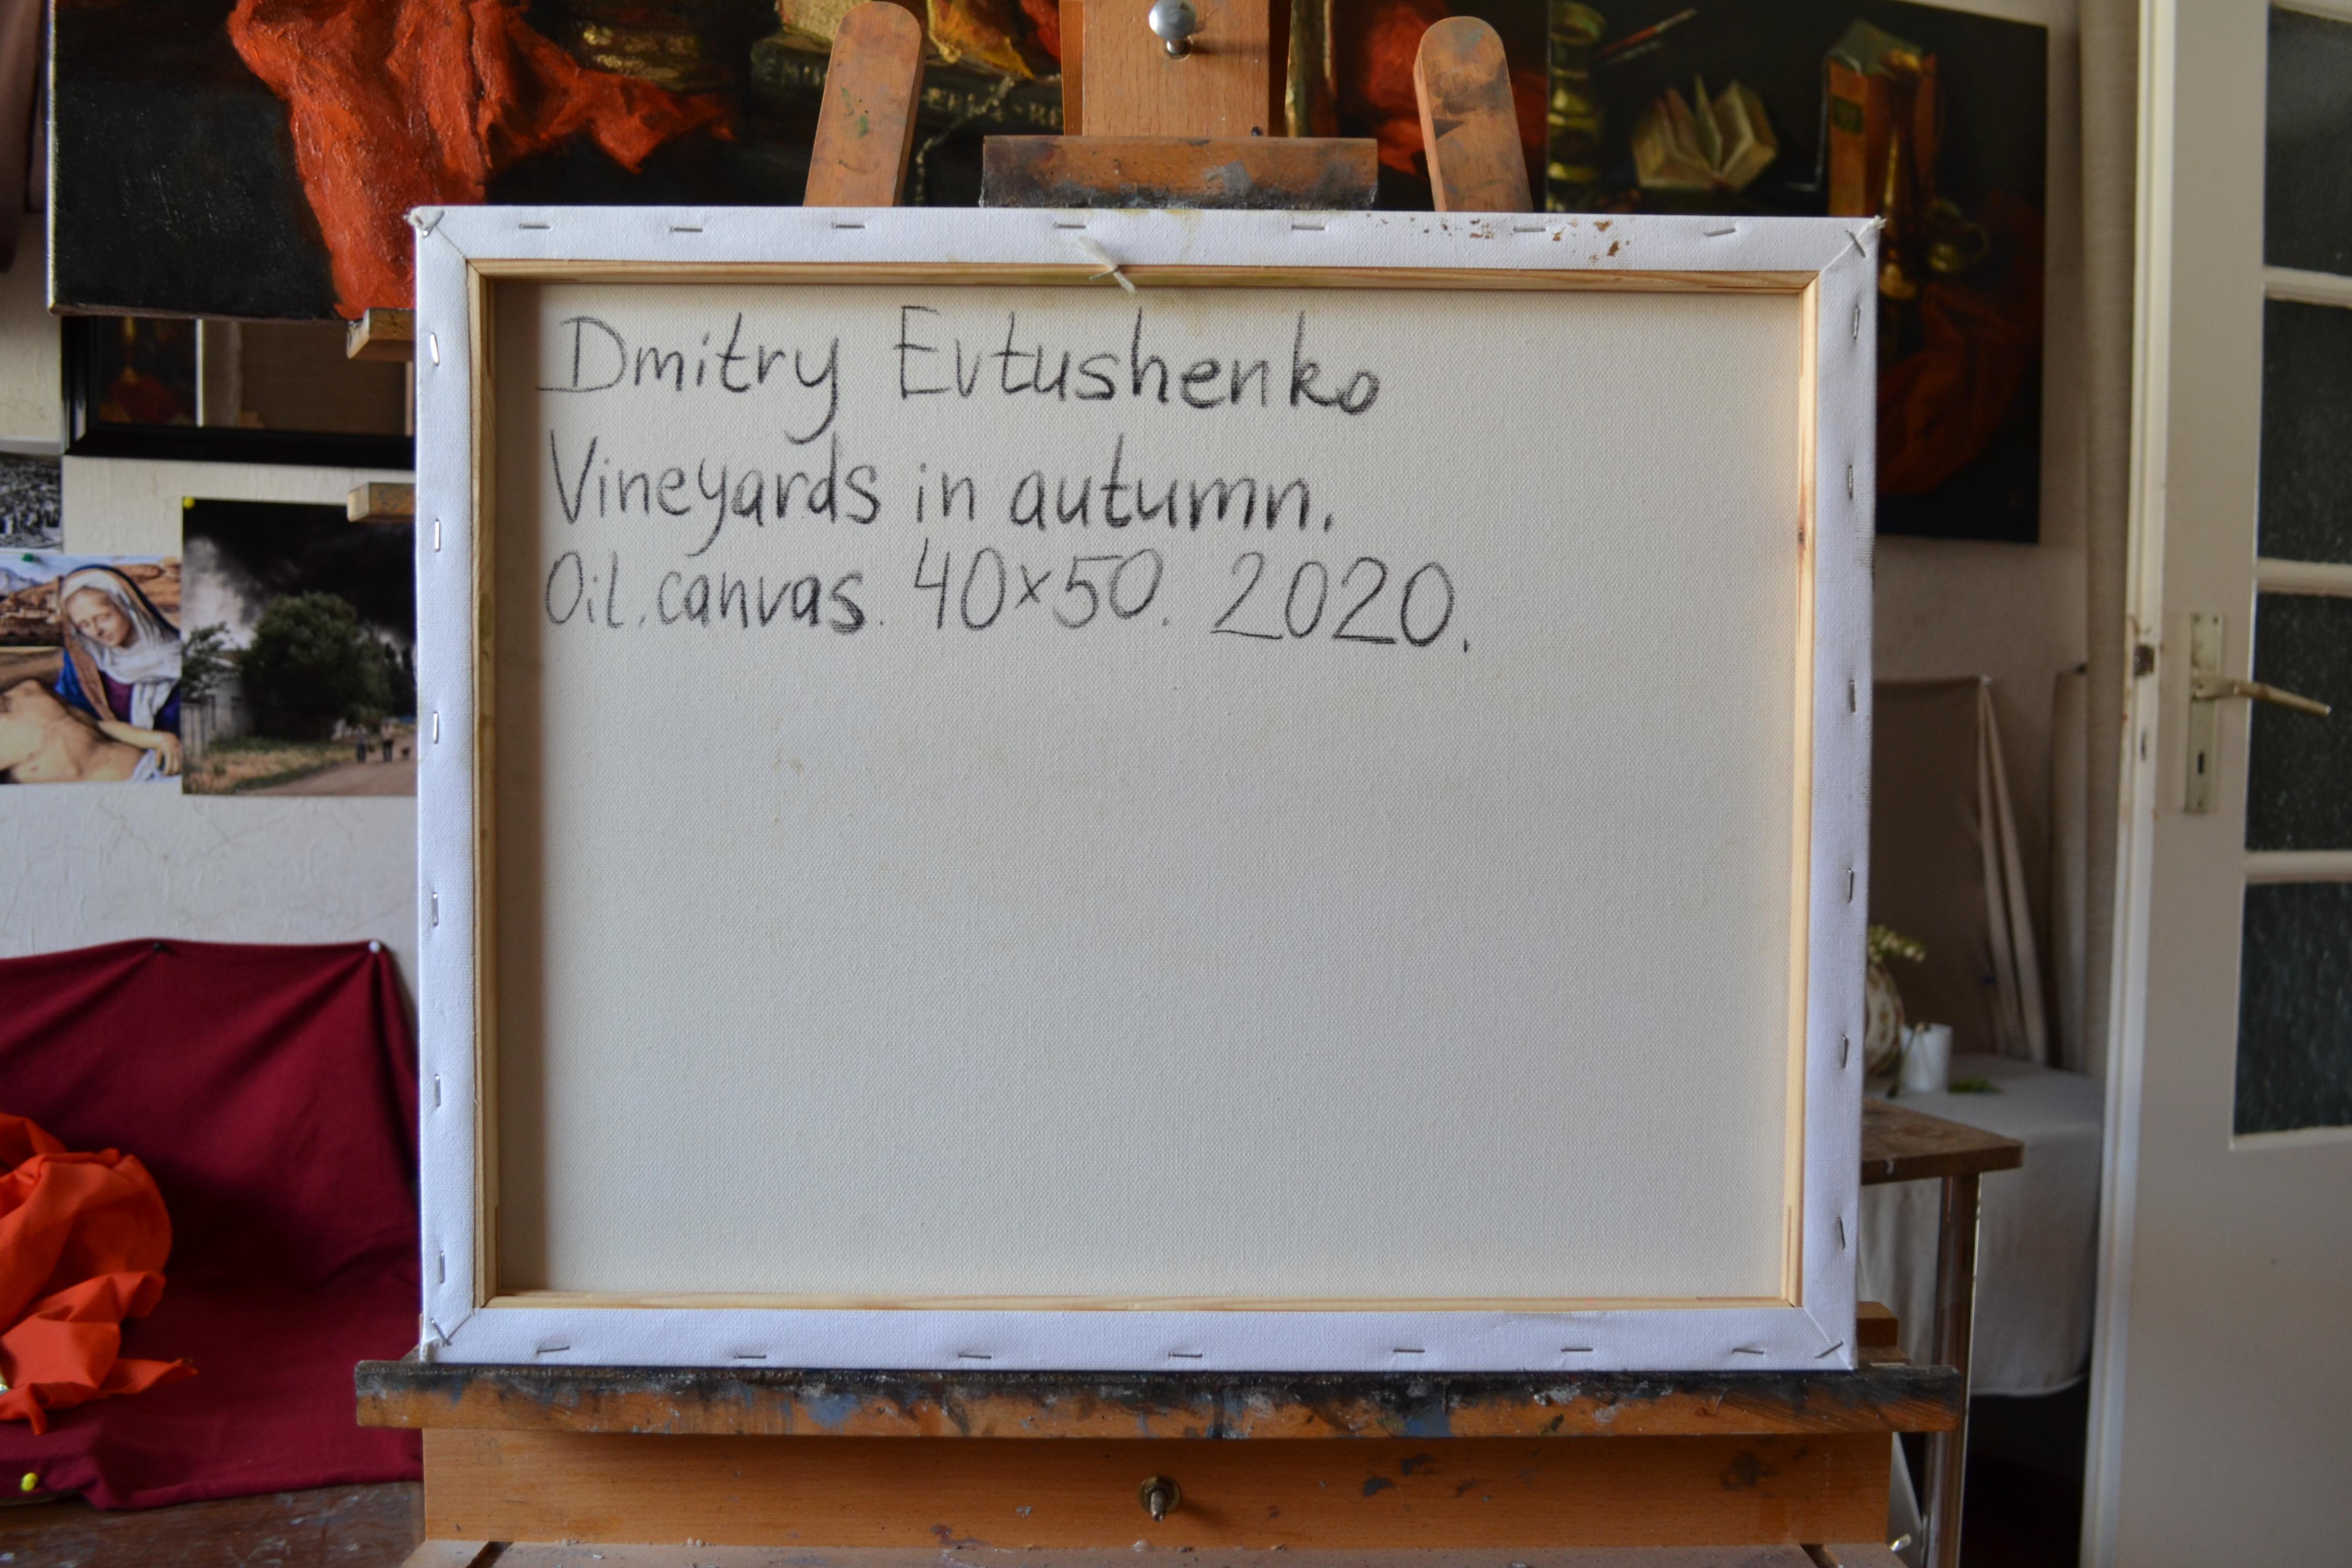 Dmitry Evtushenko
Vineyards in autumn.
Oil. canvas. 40x50. 2020.